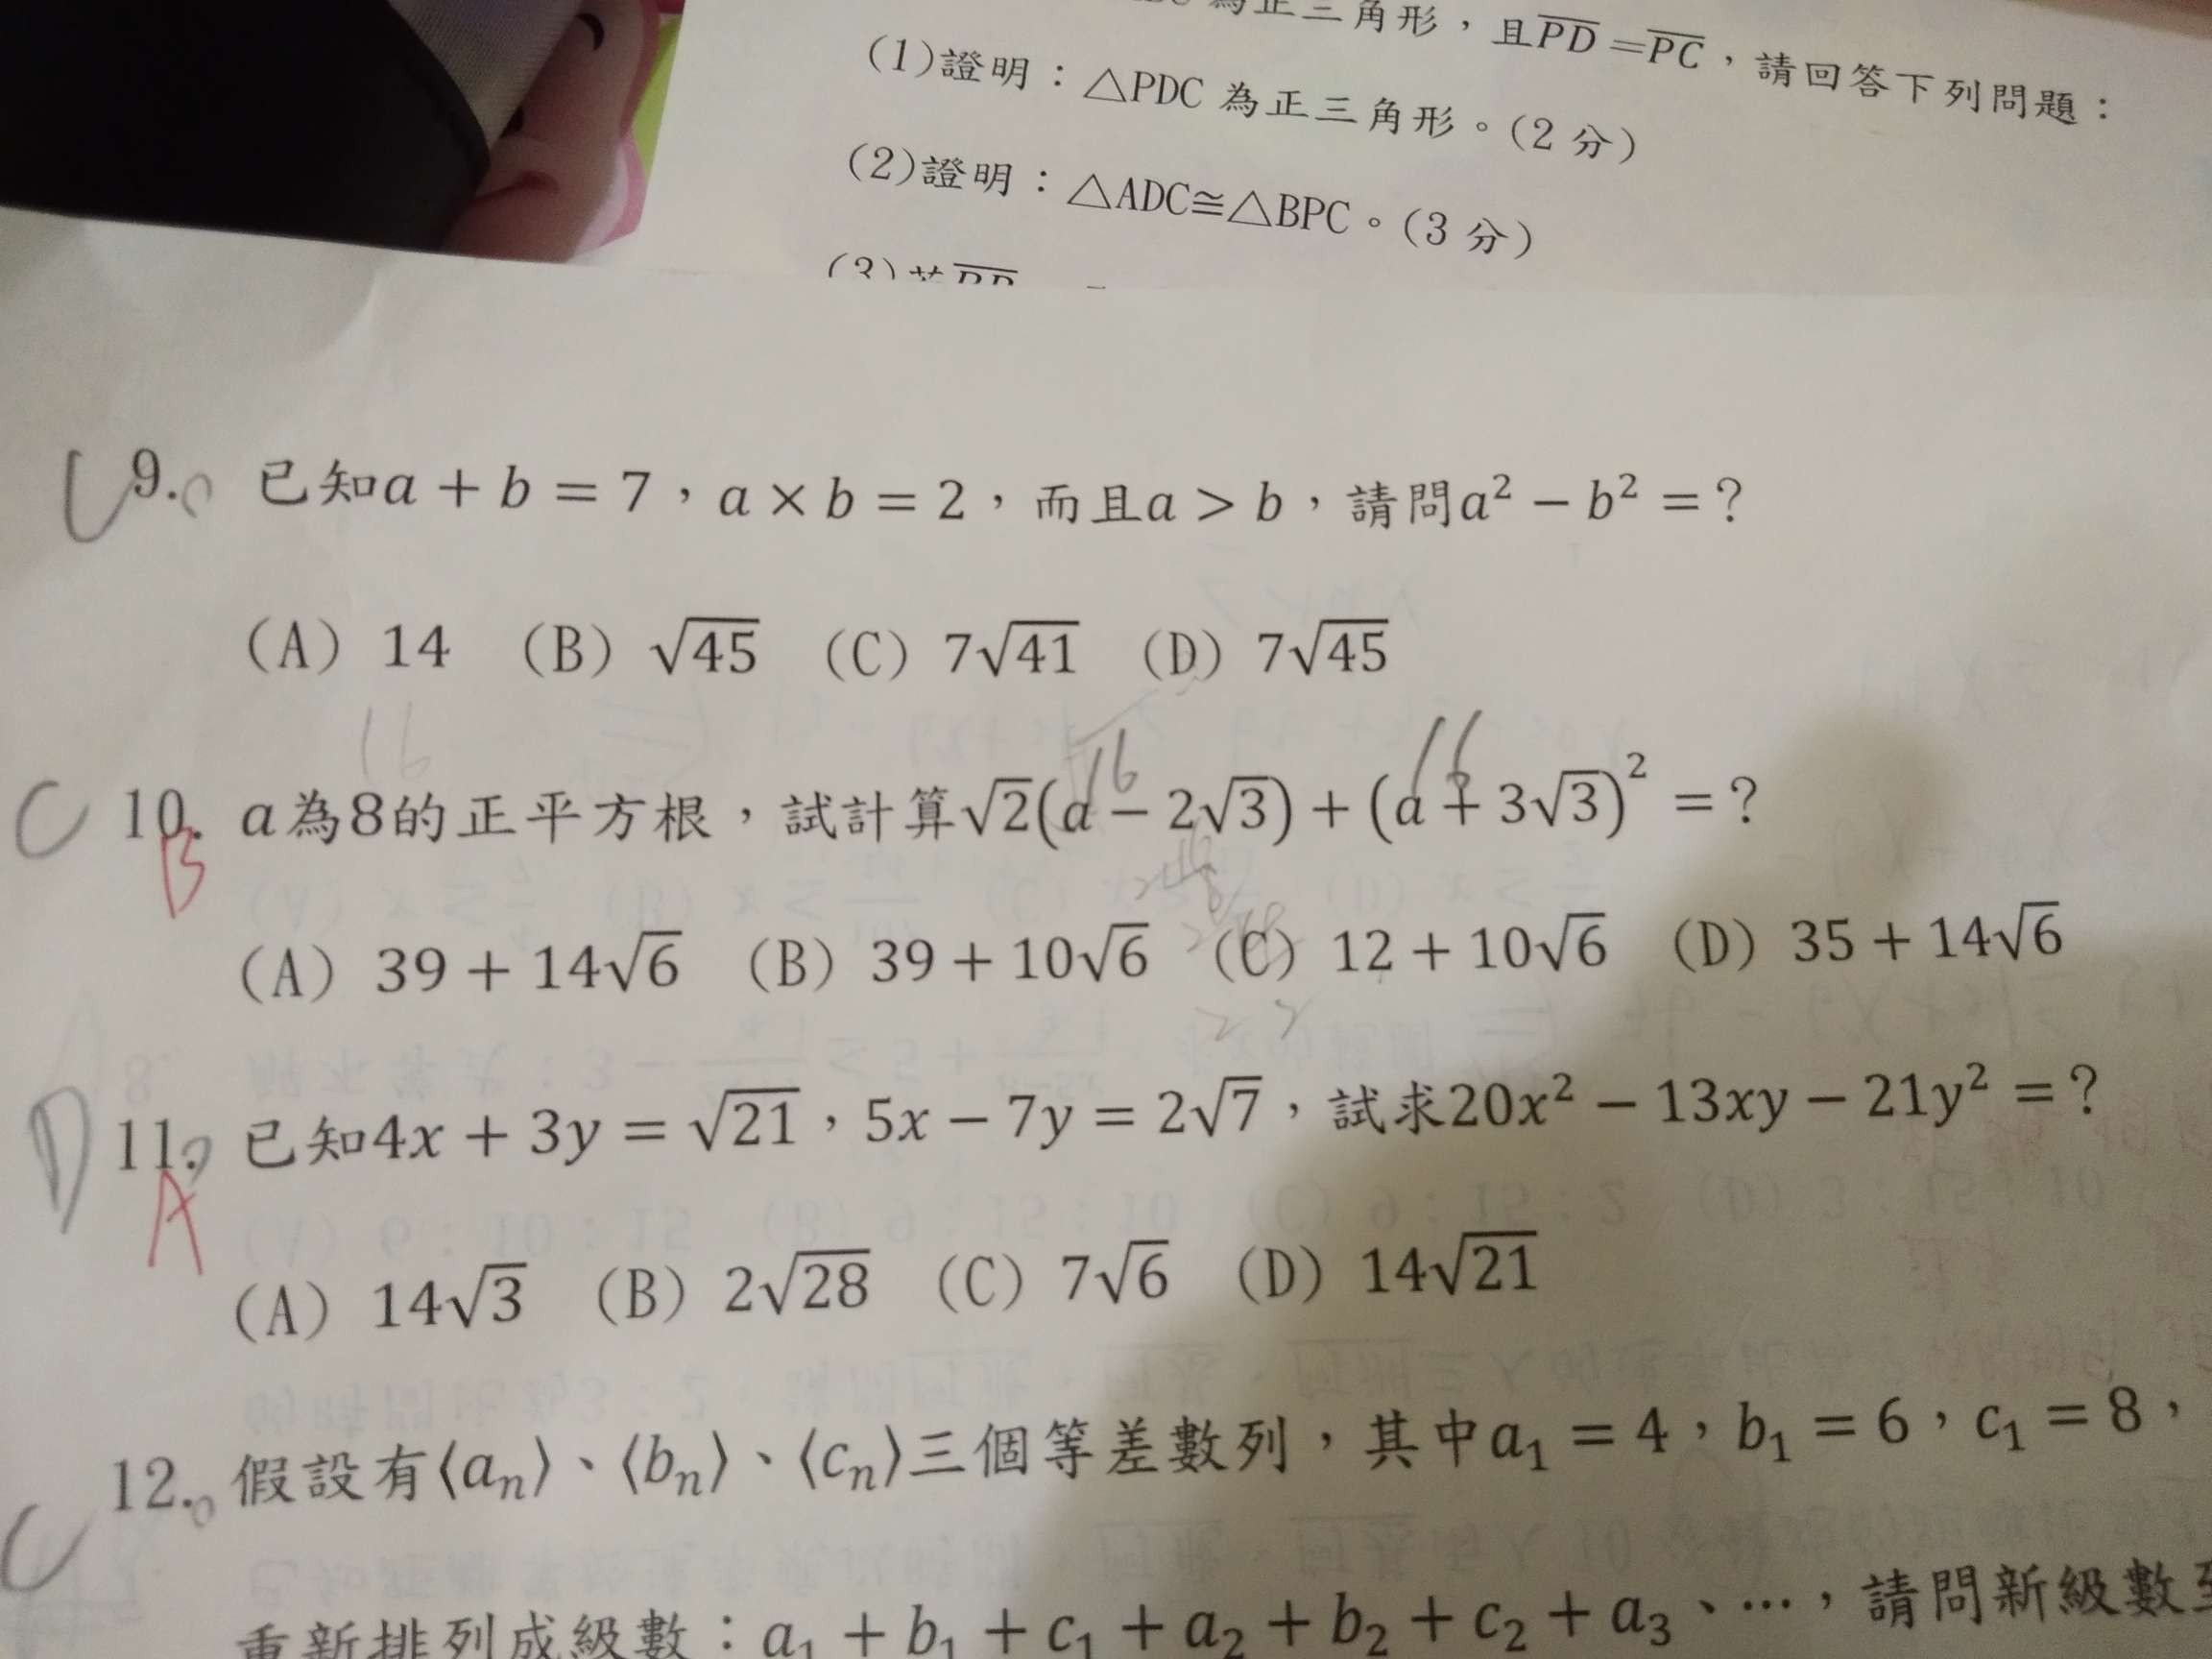 為正三角形，且PD=PC，請回答下列問題：
(1)證明：△PDC 為正三角形。(2 分)
(2)證明：△ADC≅△BPC。(3 分)
(3)若
C 9. 已知a + b = 7，a × b = 2，而且a > b，請問a² − b² = ?
(A) 14 (B) √45 (C) 7√41 (D) 7√45
16 16 16
C 10. a為8的正平方根，試計算√2(a − 2√3) + (a + 3√3)² = ?
B
(A) 39 + 14√6 (B) 39 + 10√6 (C) 12 + 10√6 (D) 35 + 14√6
D 11. 已知4x + 3y = √21，5x − 7y = 2√7，試求20x² − 13xy − 21y² = ?
A
(A) 14√3 (B) 2√28 (C) 7√6 (D) 14√21
C 12. 假設有⟨aₙ⟩、⟨bₙ⟩、⟨cₙ⟩三個等差數列，其中a₁ = 4，b₁ = 6，c₁ = 8，
重新排列成級數：a₁ + b₁ + c₁ + a₂ + b₂ + c₂ + a₃、…，請問新級數